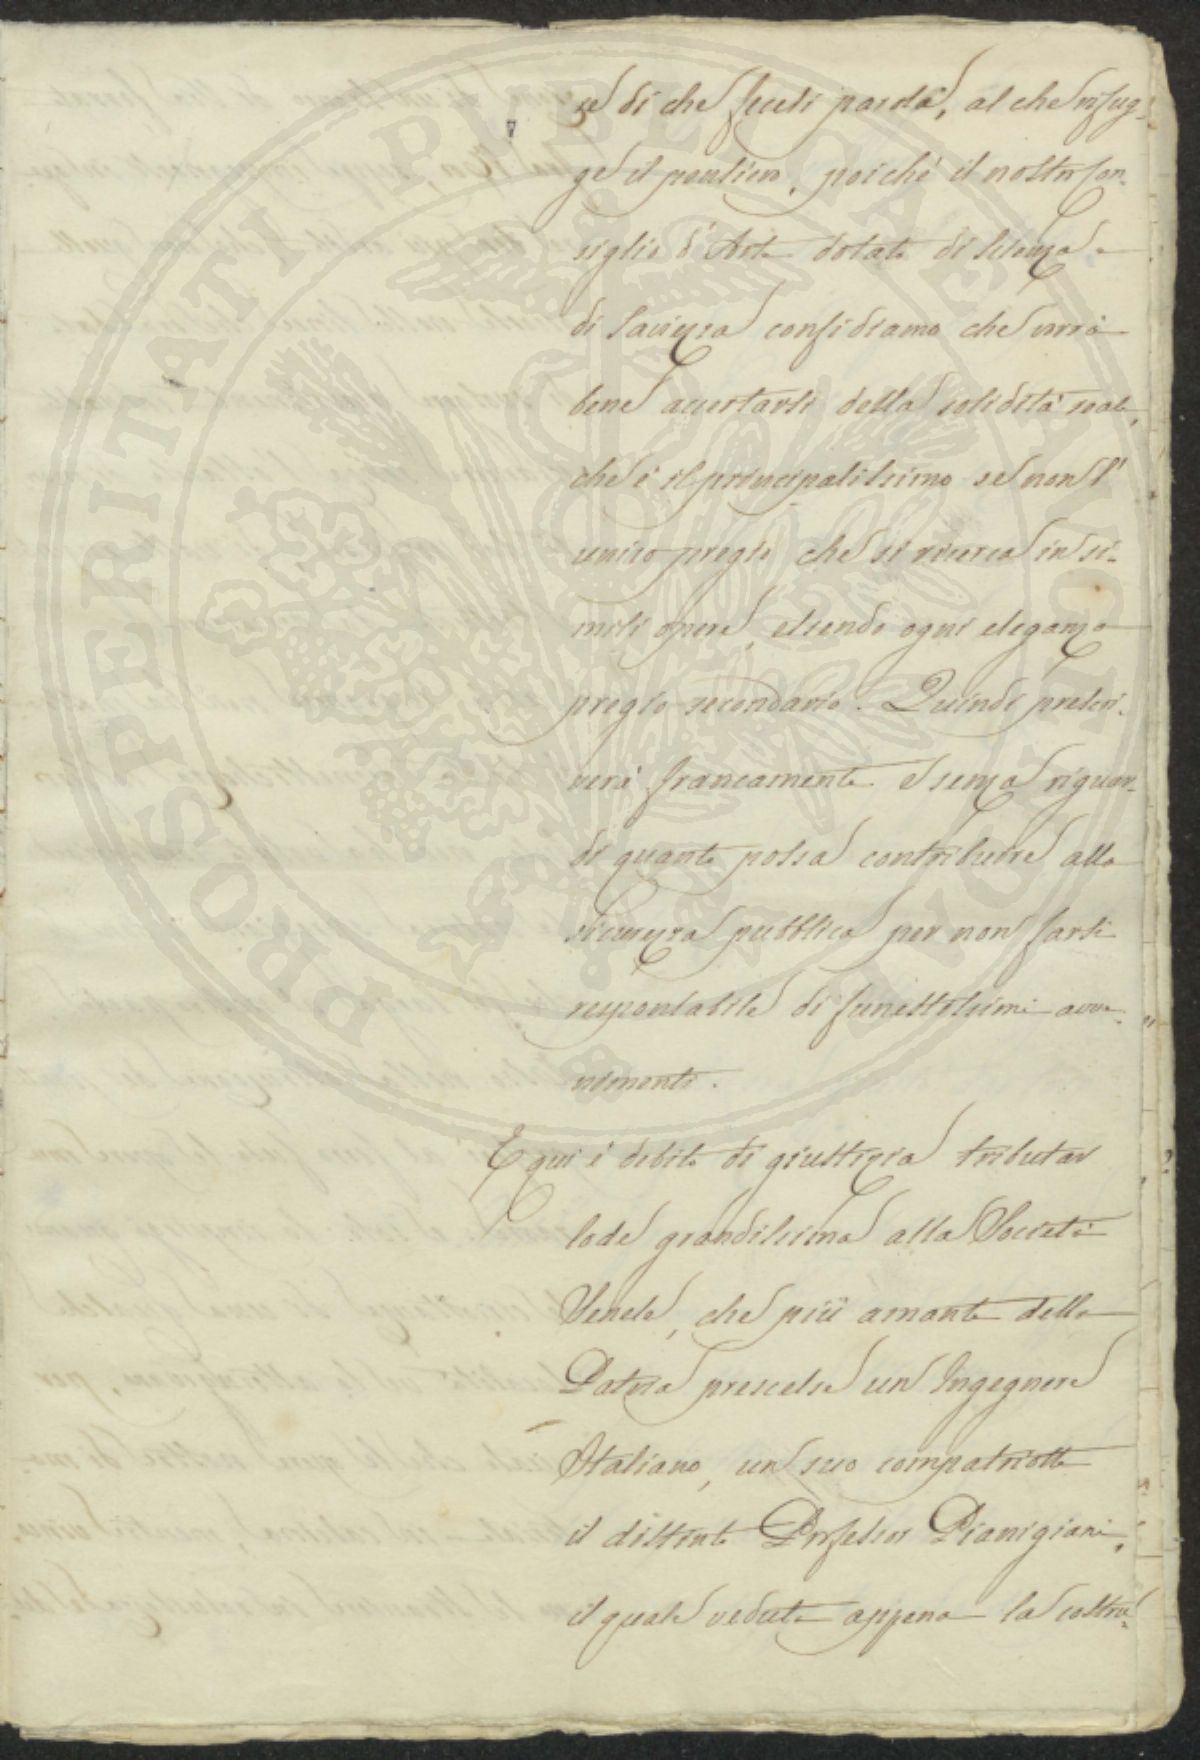 se di che feceli parola, al che rifug-
ge il pensiero, poichè il nostro Con-
siglio d'Arte dotato di Scienza e
di Saviezza confidiamo che vorrà
bene accertarsi della solidità reale,
che è il principalissimo se non l'
unico pregio che si ricerca in si-
mili opere, essendo ogni eleganza
pregio secondario. Quindi prescri-
verà francamente e senza riguar-
di quanto possa contribuire alla
sicurezza pubblica per non farsi
responsabile di funestissimi avve-
nimenti.
E qui è debito di giustizia tributar
lode grandissima alla Società
Senese, che più amante della
Patria prescelse un Ingegnere
Italiano, un suo compatriotta
il distinto Professor Pianigiani,
il quale vedute appena la costru-
PROSPERITATI PUBLICAE AUGENDAE